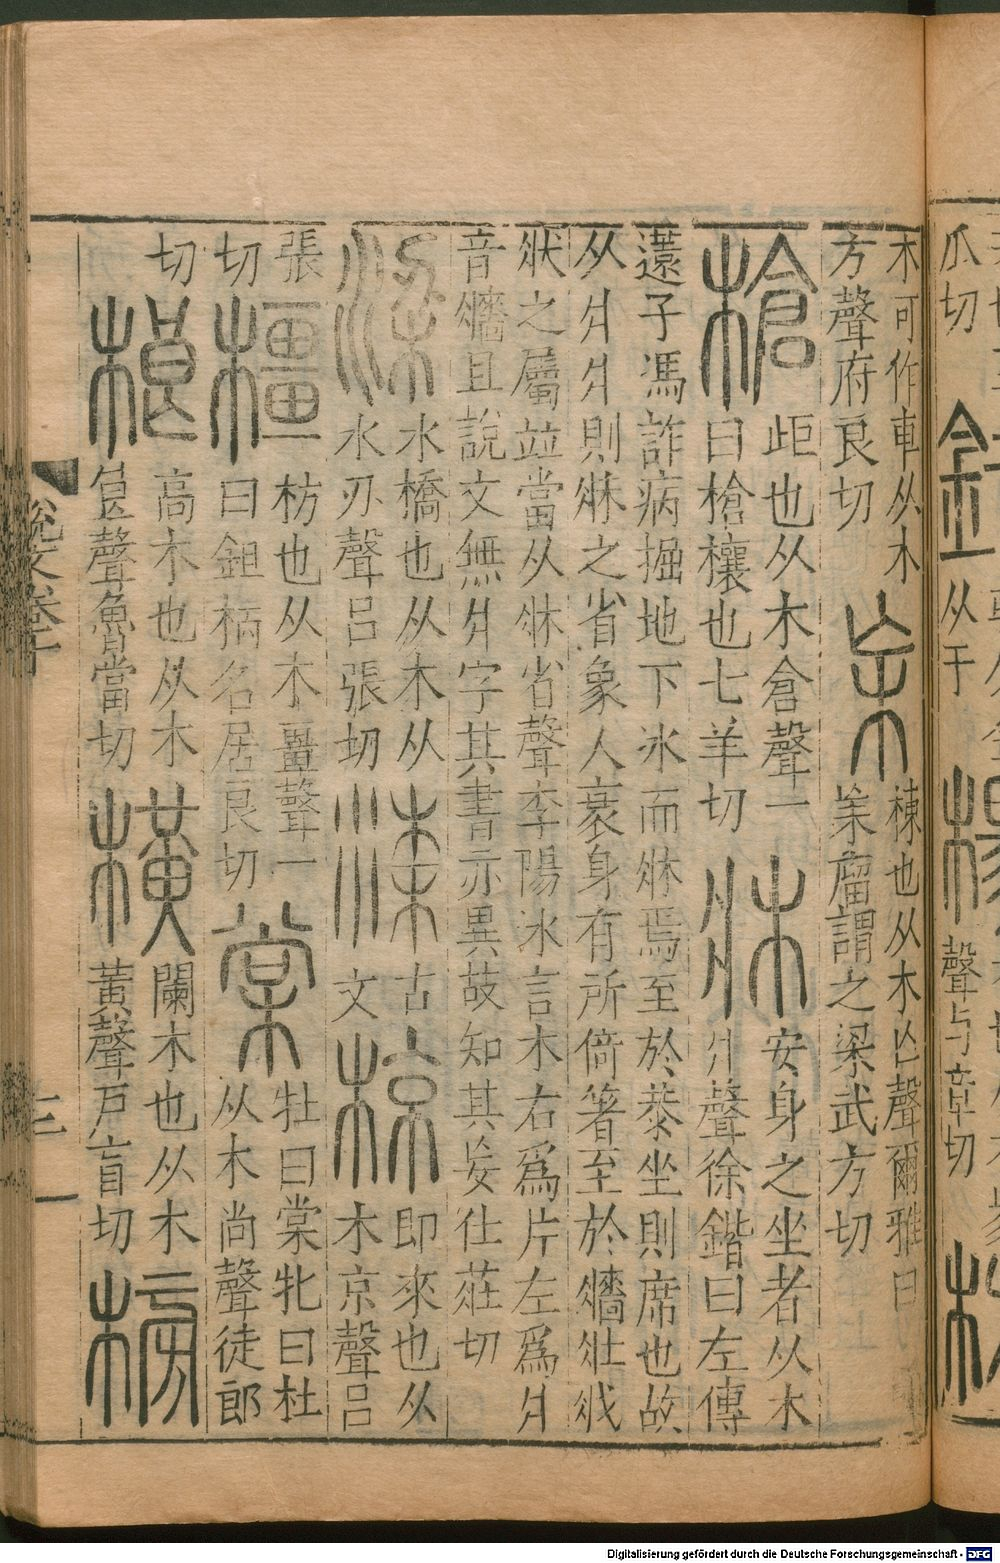 瓜切
从于
聲与章切
木可作車从木杗棟也从木亡聲爾雅曰
方聲府良切杗廇謂之梁武方切
槍距也从木倉聲一牀安身之坐者从木
曰槍欀也七羊切爿聲徐鍇曰左傳
薳子馮詐病掘地下冰而牀焉至於恭坐則席也故
从爿爿則牀之省象人衺身有所倚箸至於牆壯戕
狀之屬竝當从牀省聲李陽冰言木右爲片左爲爿
音牆且說文無爿字其書亦異故知其妄仕莊切
梁水橋也从木从古椋即來也从
水刅聲呂張切文木京聲呂
張橿枋也从木畺聲一棠牡曰棠牝曰杜
切曰鉏柄名居良切从木尚聲徒郎
切桹高木也从木橫闌木也从木榜
良聲魯當切黃聲戶盲切
說文卷十 三一
Digitalisierung gefördert durch die Deutsche Forschungsgemeinschaft - DFG